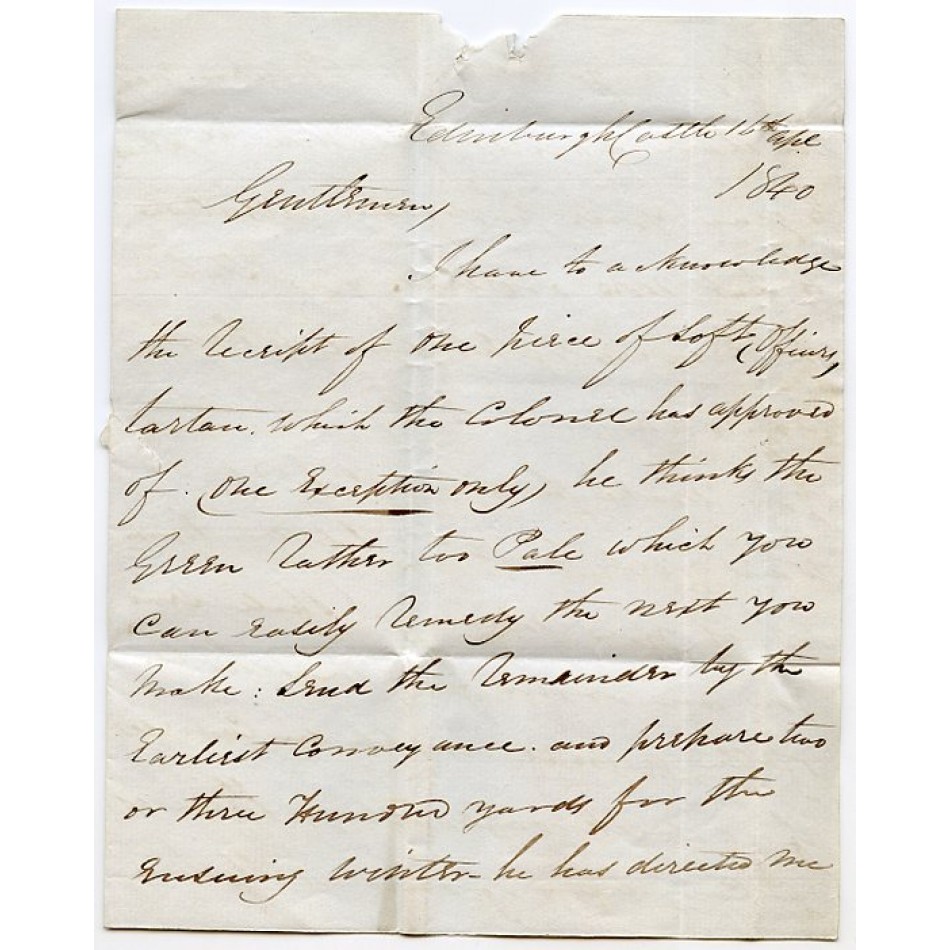 Edinburgh Castle 16th Apl
1840
Gentlemen,
I have to acknowledge
the receipt of one piece of Soft Officers,
tartan. which the Colonel has approved
of. (one Exception only) he thinks the
Green rather too Pale which you
can easily remedy the next you
make: Send the remainder by the
Earliest Conveyance. and prepare two
or three Hundred yards for the
ensuing winter - he has directed me